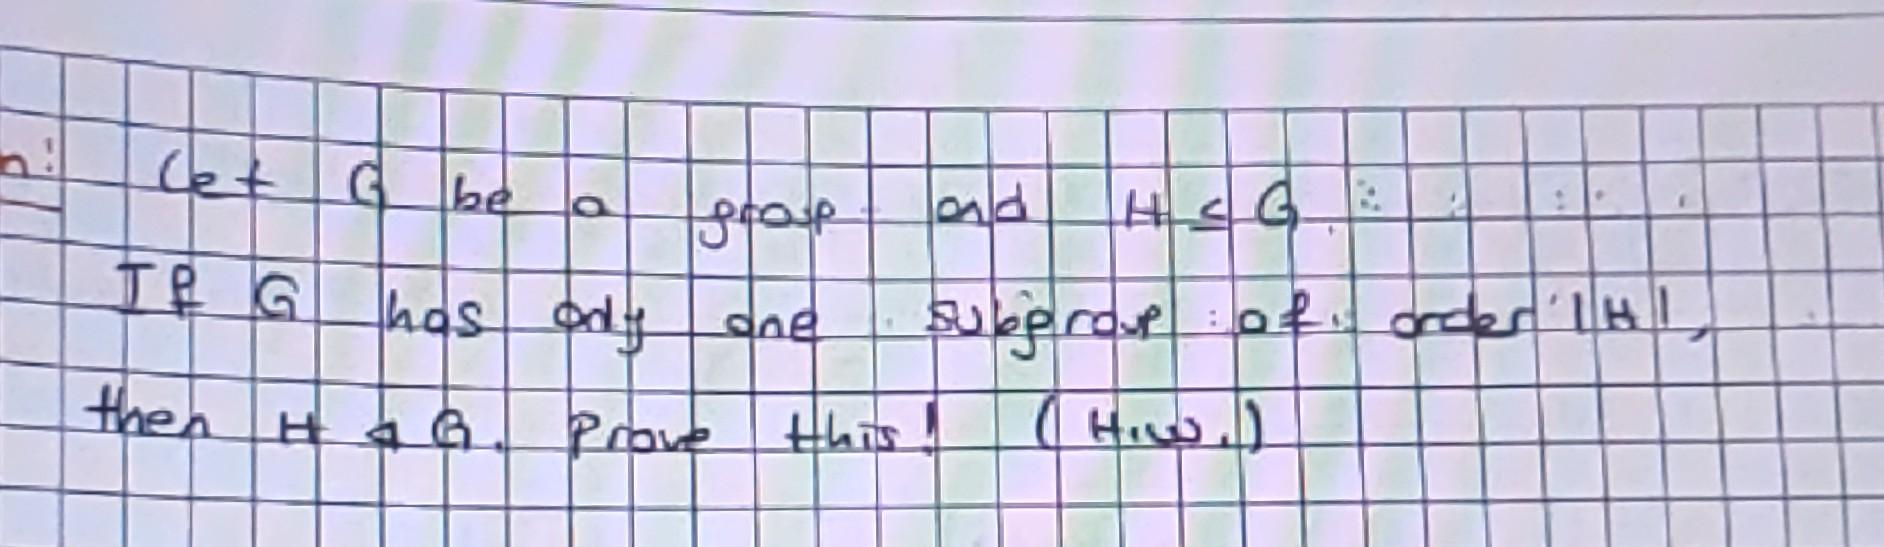 n:  Let G be a group and H ≤ G.
If G has only one subgroup of order |H|,
then H ⊲ G. Prove this! (H.w.)